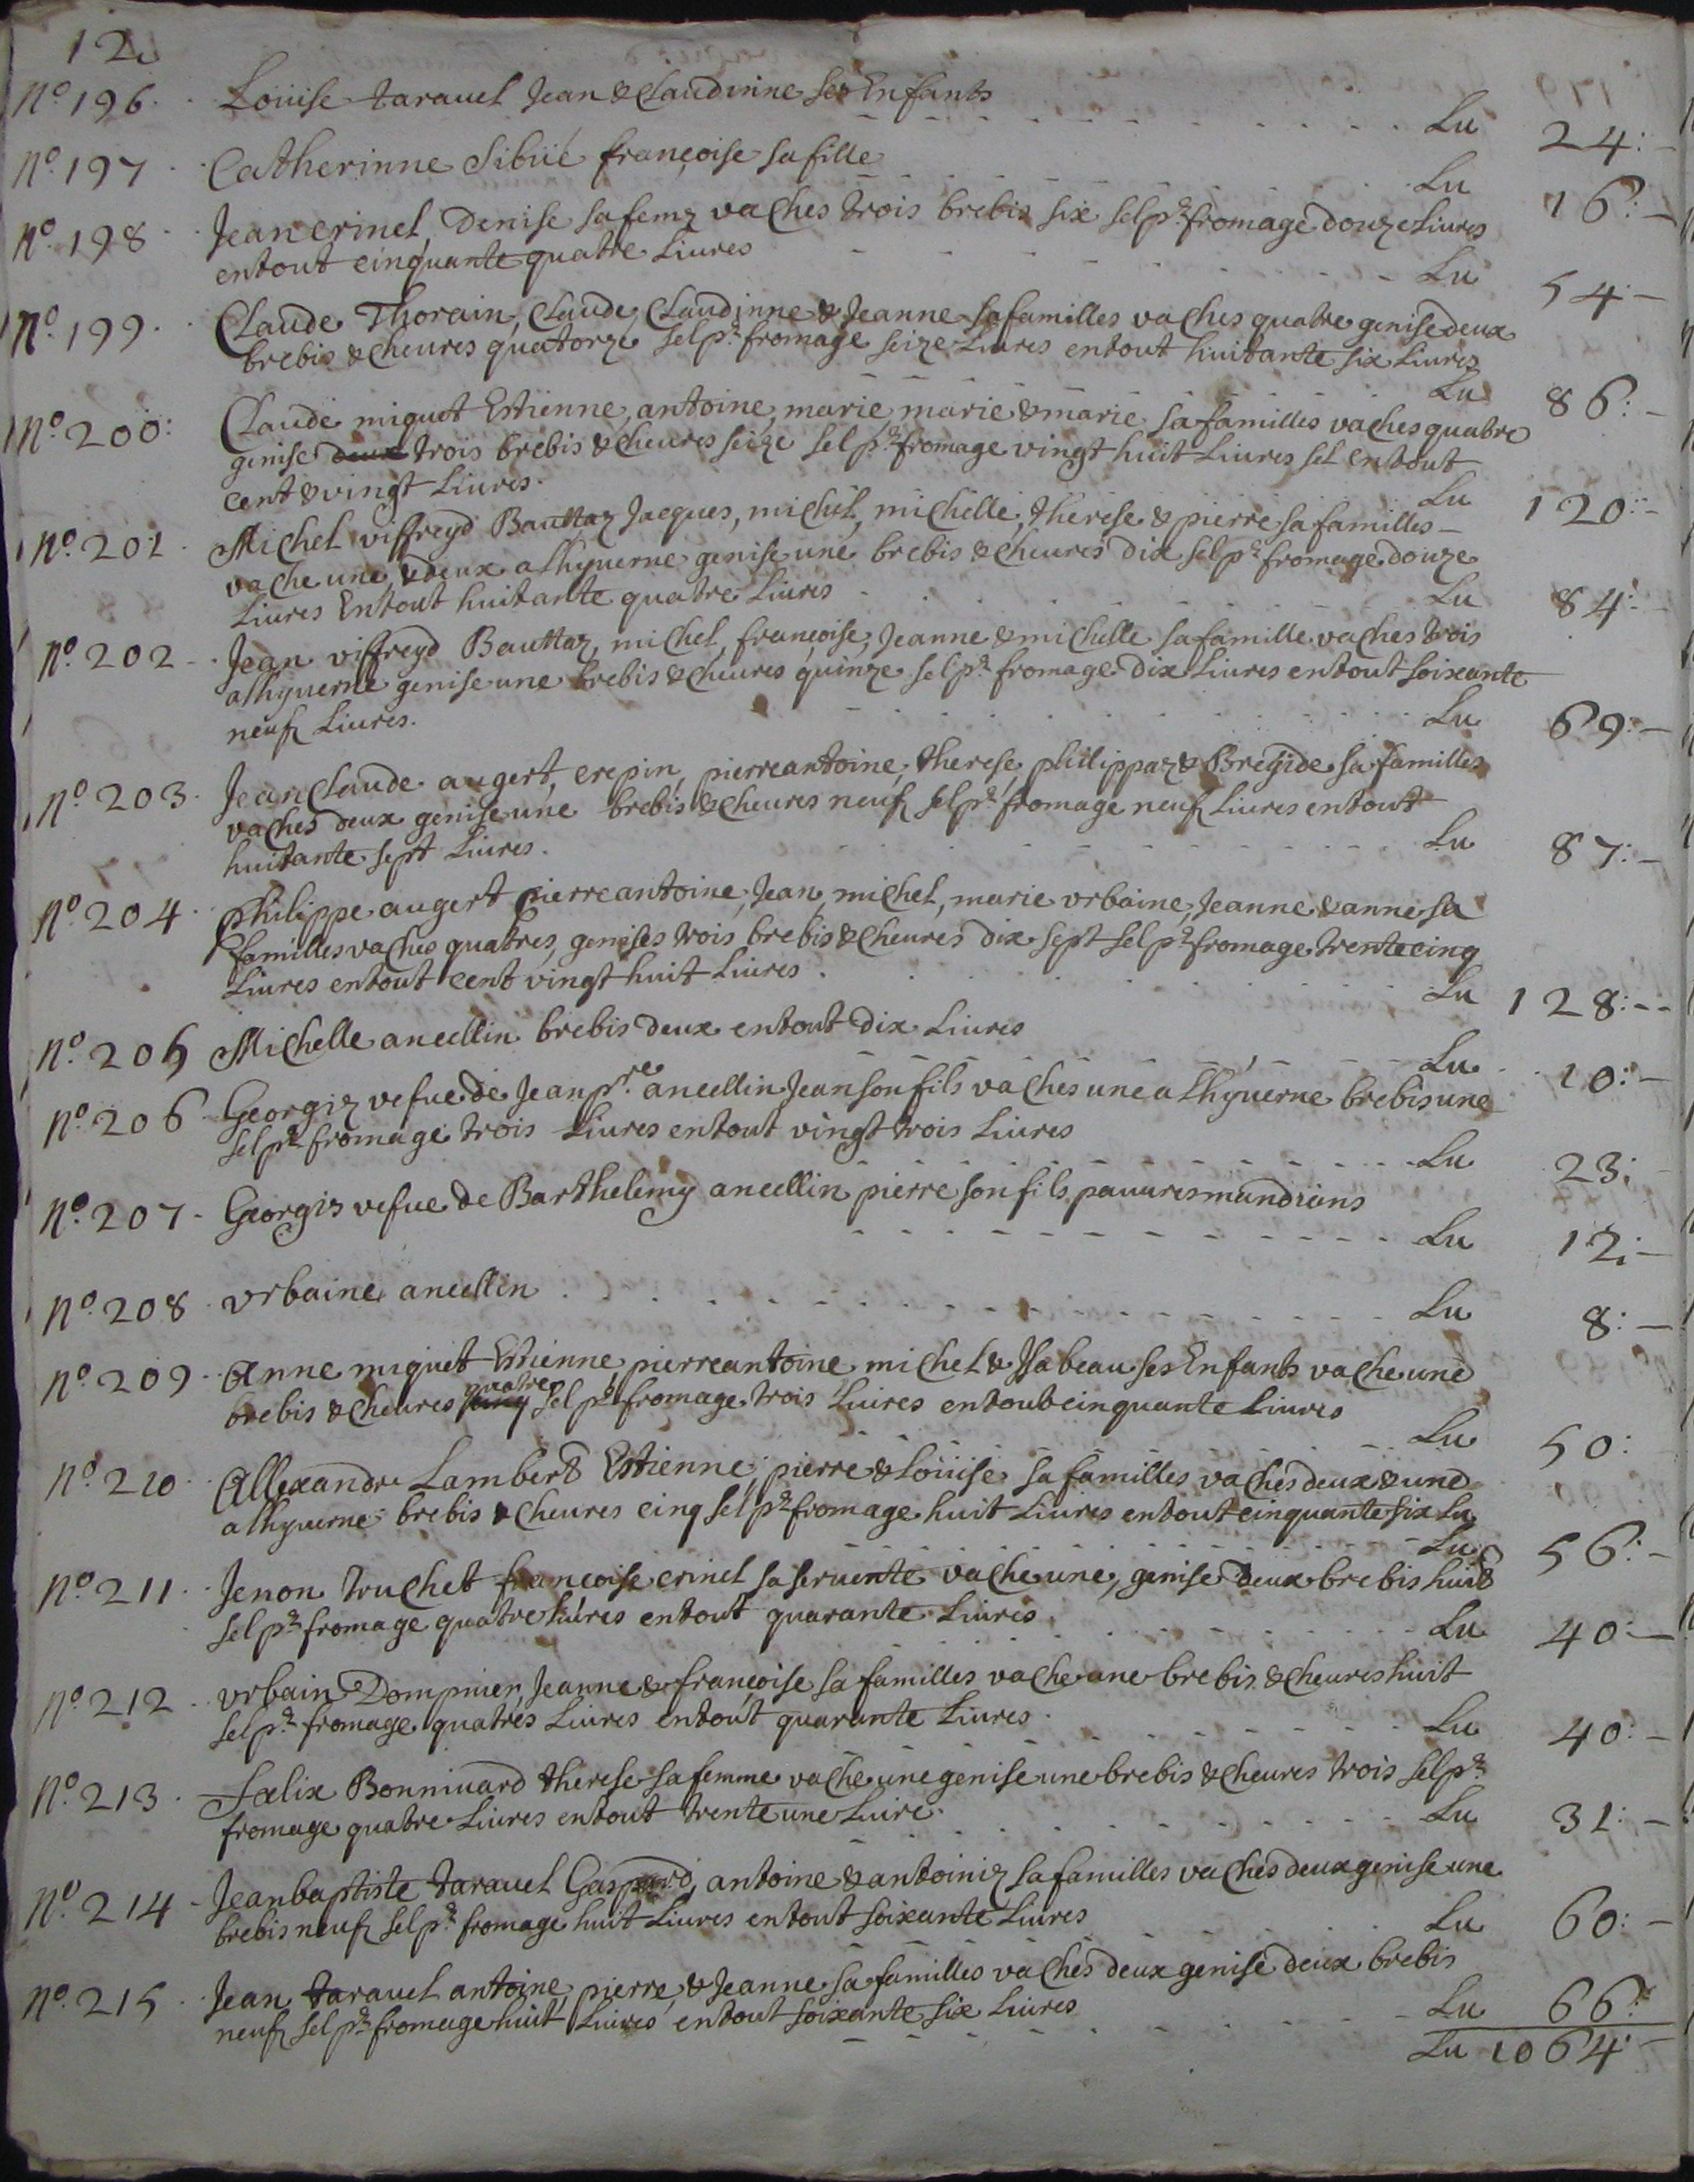 12
N.º 196. Loüise taravel Jean & Claudinne ses Enfants
Lu 24:
N.º 197. Catherinne Sibüé françoise sa fille
Lu 16:
N.º 198. Jean crinel Denise sa femz vaches trois brebis six sel p.r fromage douze Liures
entout cinquante quatre Liures
Lu 54
N.º 199. Claude Thorain, Claude, Claudinne & Jeanne sa familles vaches quatre genise deux
brebis & cheures quatorze sel p.r fromage seize Liures entout huitante six Liures
Lu 86:
N.º 200: Claude miquet Estienne, antoine, marie, marie & marie sa familles vaches quatre
genise deux trois brebis & cheures seize sel p.r fromage vingt huit Liures sel entout
cent & vingt Liures.
Lu 120:
N.º 201. Michel viffreyd Bauttaz Jacques, michel, michelle, therese & pierre sa familles
vache une & deux a lhyuerne genise une brebis & cheures dix sel p.r fromage douze
Liures Entout huitante quatre Liures
Lu 84:
N.º 202. Jean viffreyd Bauttaz, michel, françoise, Jeanne & michelle sa famille vaches trois
a lhyuerne genise une brebis & cheures quinze sel p.r fromage dix Liures entout soixante
neuf Liures.
Lu 69:
N.º 203. Jean Claude augert, crepin, pierre antoine, therese, philippaz & Brigide sa familles
vaches deux genise une brebis & cheures neuf sel p.r fromage neuf Liures entout
huitante sept Liures.
Lu 87:
N.º 204. philippe augert pierre antoine, Jean, michel, marie vrbaine, Jeanne & anne sa
familles vaches quatres, genises trois brebis & cheures dix sept sel p.r fromage trente cinq
Liures entout cent vingt huit Liures
Lu 128:
N.º 205 Michelle ancellin brebis deux entout dix Liures
Lu 10:
N.º 206. Georgiz vefue de Jean p.re ancellin Jean son fils vaches une a lhyuerne brebis une
sel p.r fromage trois Liures entout vingt trois Liures
Lu 23:
N.º 207. Georgiz vefue de Barthelemy ancellin pierre son fils pauures mandians
Lu 12:
N.º 208. vrbaine ancellin
Lu 8:
N.º 209. Anne miquet Estienne, pierre antoine, michel & Jsabeau ses Enfants vache une
brebis & cheures cinq quatre sel p.r fromage trois Liures entout cinquante Liures
Lu 50:
N.º 210. Allexandre Lambert Estienne, pierre & Loüise sa familles vaches deux & une
a lhyuerne brebis & cheures cinq sel p.r fromage huit Liures entout cinquante six Lu
Lu 56:
N.º 211. Jenon truchet françoise crinel sa seruente vache une, genise deux brebis huit
sel p.r fromage quatre Liures entout quarante Liures
Lu 40:
N.º 212. vrbain Dompnier, Jeanne & françoise sa familles vache une brebis & cheures huit
sel p.r fromage quatres Liures entout quarante Liures
Lu 40:
N.º 213. Fœlix Bonniuard therese sa femme vache une genise une brebis & cheures trois sel p.r
fromage quatre Liures entout trente une Liure
Lu 31:
N.º 214. Jean baptiste taravel Gaspard, antoine & antoiniz sa familles vaches deux genise une
brebis neuf sel p.r fromage huit Liures entout soixante Liures
Lu 60:
N.º 215. Jean taravel antoine, pierre, & Jeanne sa familles vaches deux genise deux brebis
neuf sel p.r fromage huit Liures entout soixante six Liures
Lu 66:
Lu 1064: